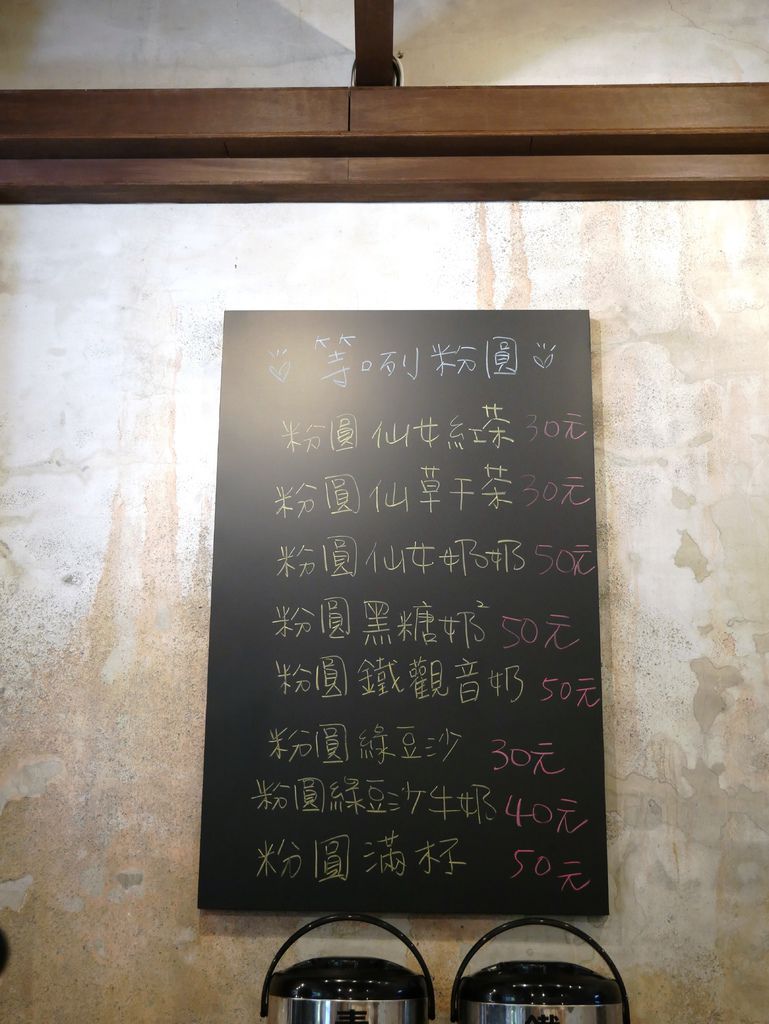 等咧粉圓
粉圓仙女紅茶 30元
粉圓仙草干茶 30元
粉圓仙女奶奶 50元
粉圓黑糖奶² 50元
粉圓鐵觀音奶 50元
粉圓綠豆沙 30元
粉圓綠豆沙牛奶 40元
粉圓滿杯 50元